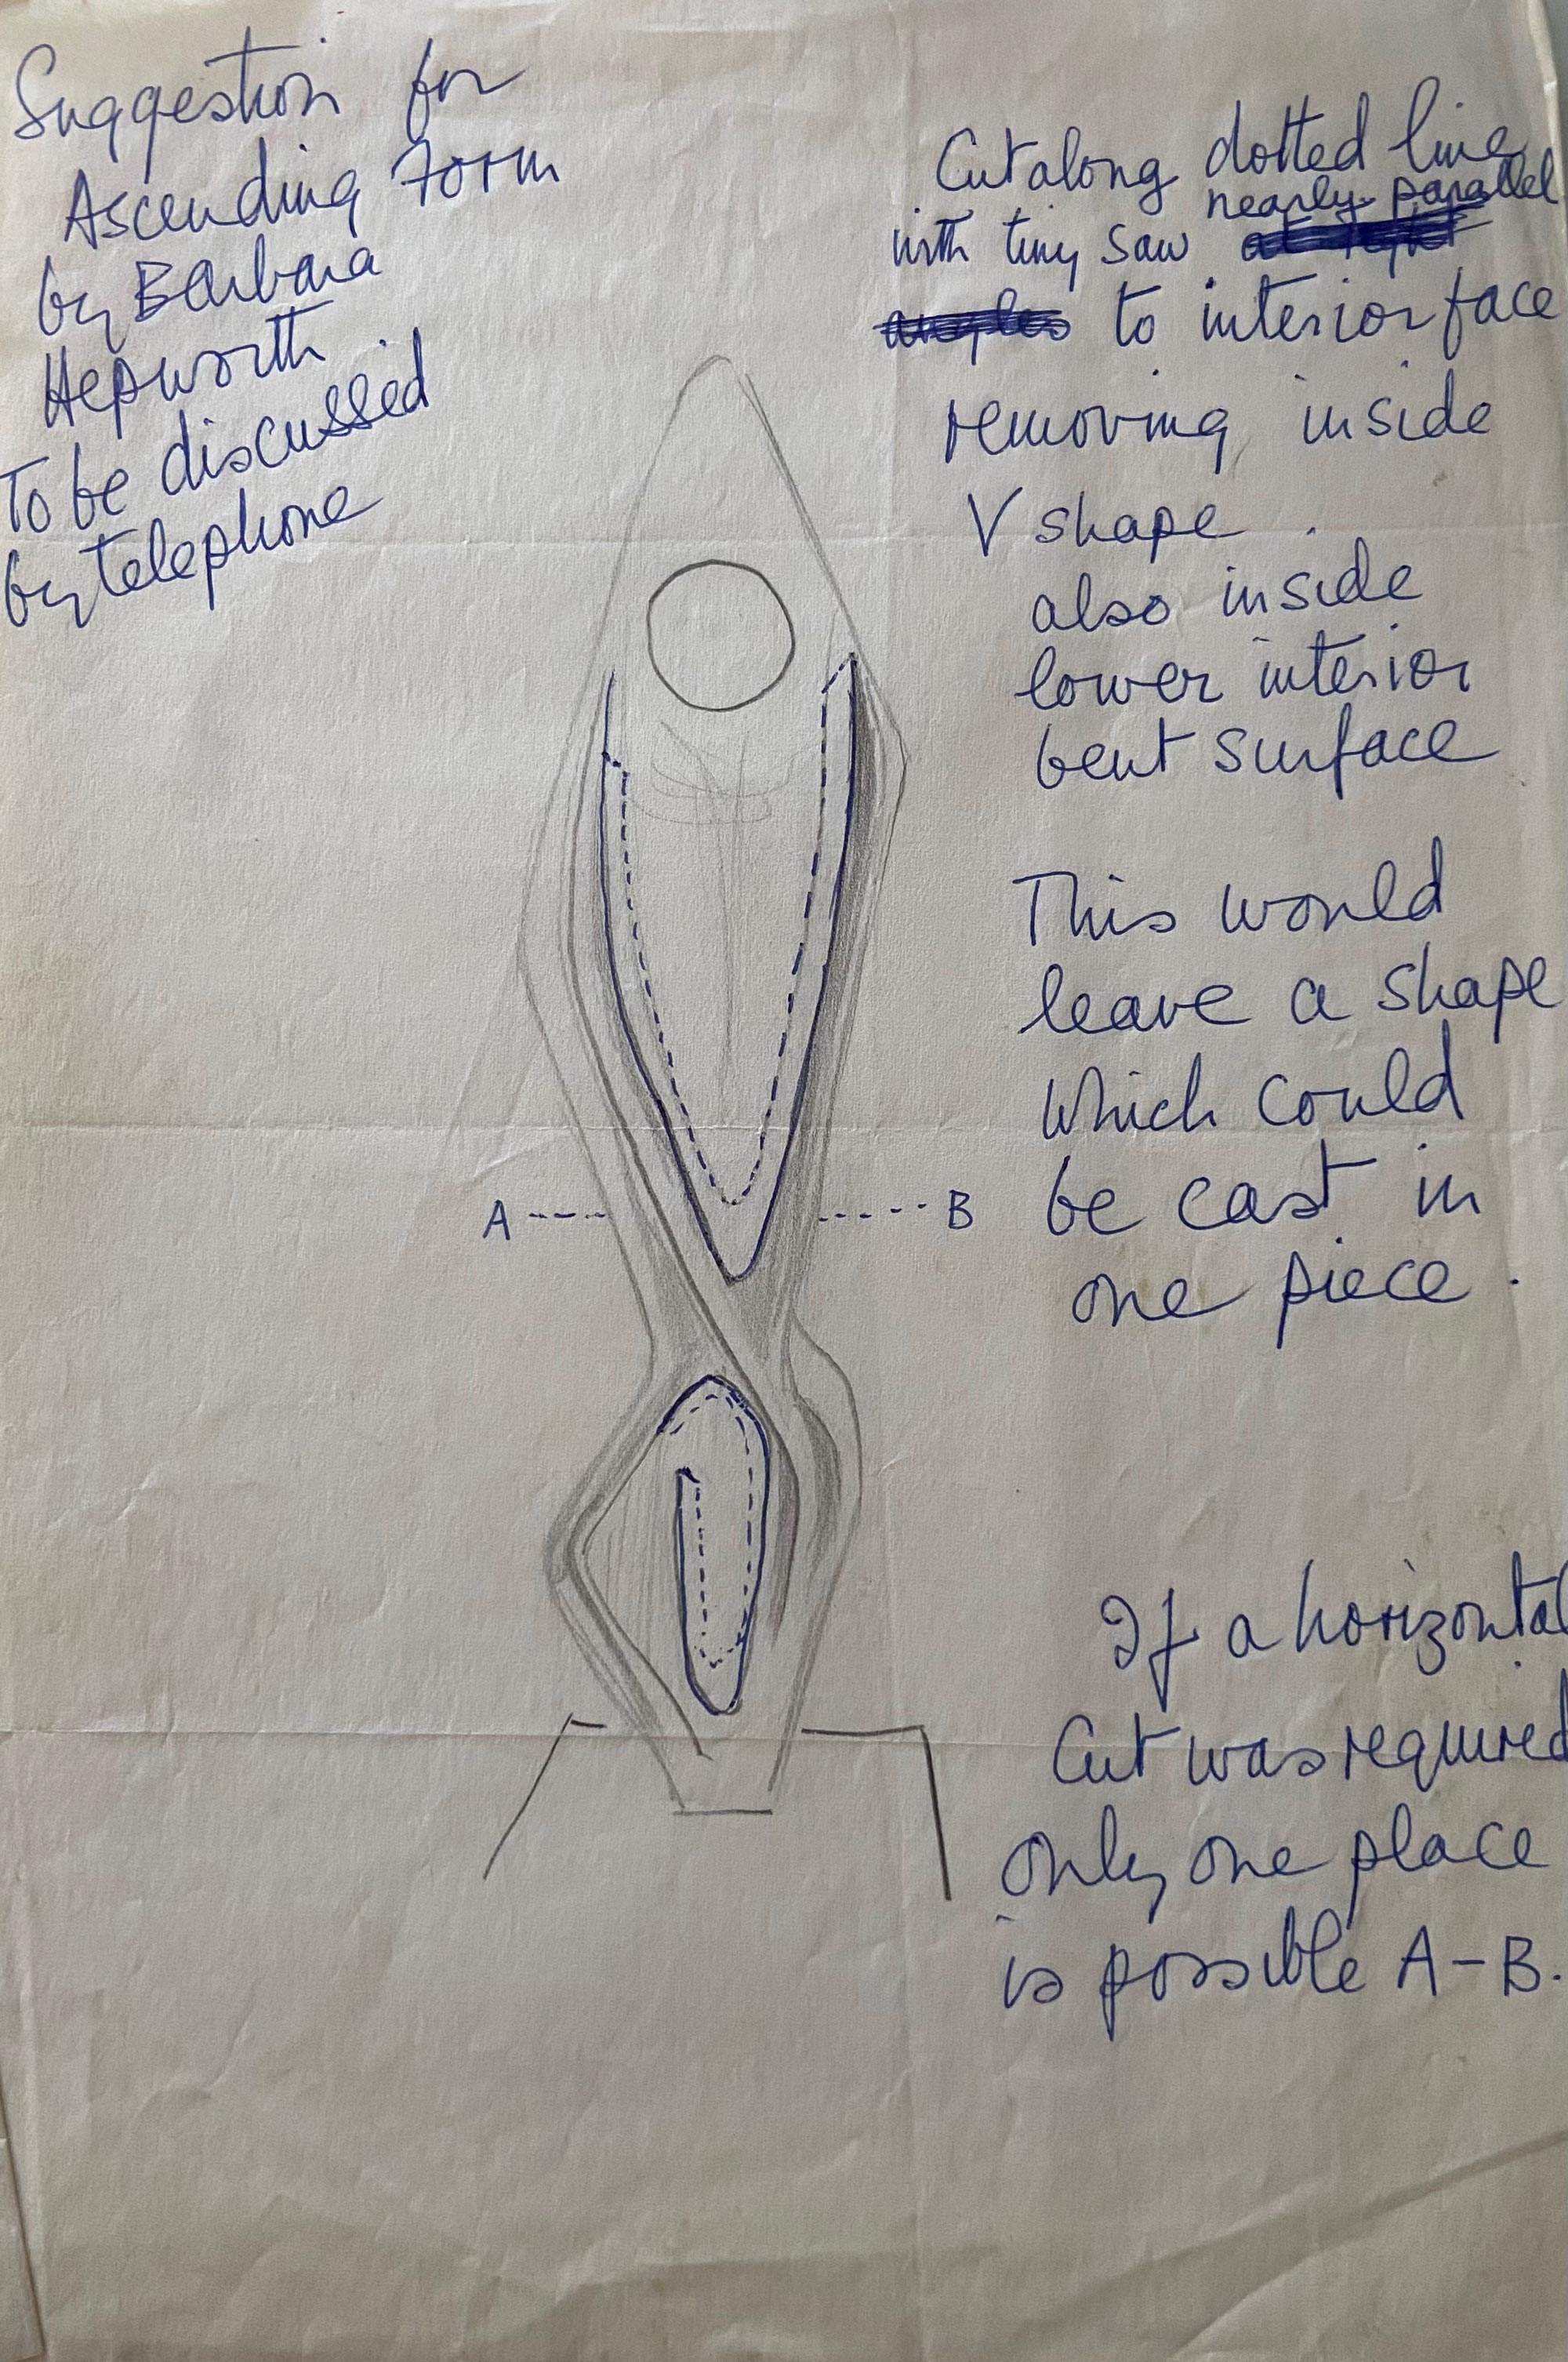 Suggestion for
Ascending Form
by Barbara
Hepworth
To be discussed
by telephone
Cut along dotted line
nearly parallel
with tiny saw at right
angles to interior face
removing inside
V shape.
also inside
lower interior
bent surface
This would
leave a shape
which could
be cast in
one piece.
A B
If a horizontal
Cut was required
only one place
is possible A-B.